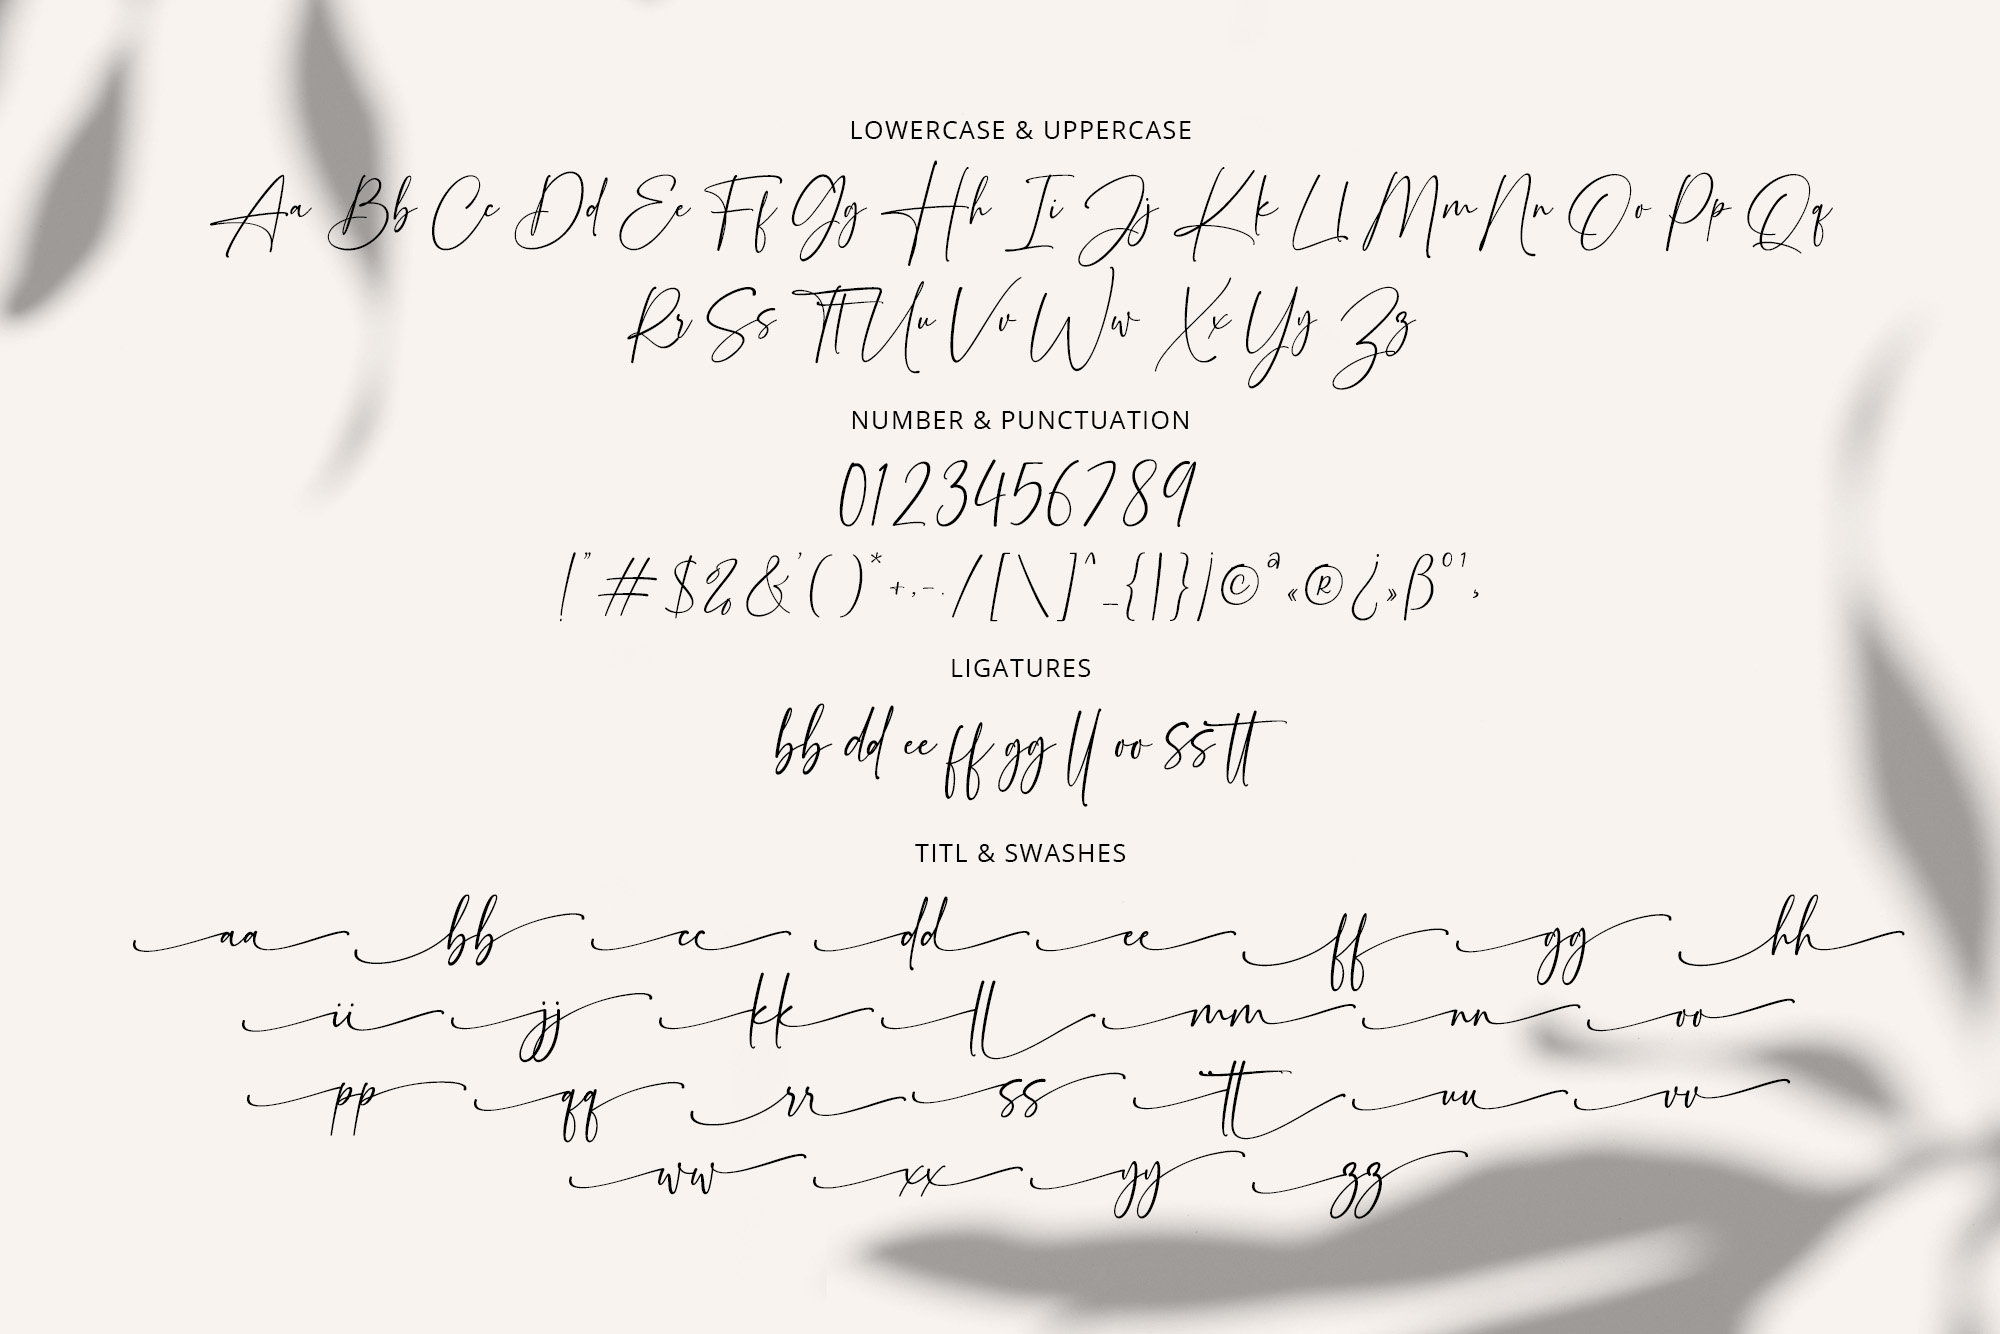 LOWERCASE & UPPERCASE
Aa Bb Cc Dd Ee Ff Gg Hh Ii Jj Kk Ll Mm Nn Oo Pp Qq
Rr Ss Tt Uu Vv Ww Xx Yy Zz
NUMBER & PUNCTUATION
0123456789
!"#$%&'()*+,-./[\]^_{|}¡©ª«®¿»ßº¹,
LIGATURES
bb dd ee ff gg ll oo ss tt
TITL & SWASHES
aa bb cc dd ee ff gg hh
ii jj kk ll mm nn oo
pp qq rr ss tt uu vv
ww xx yy zz